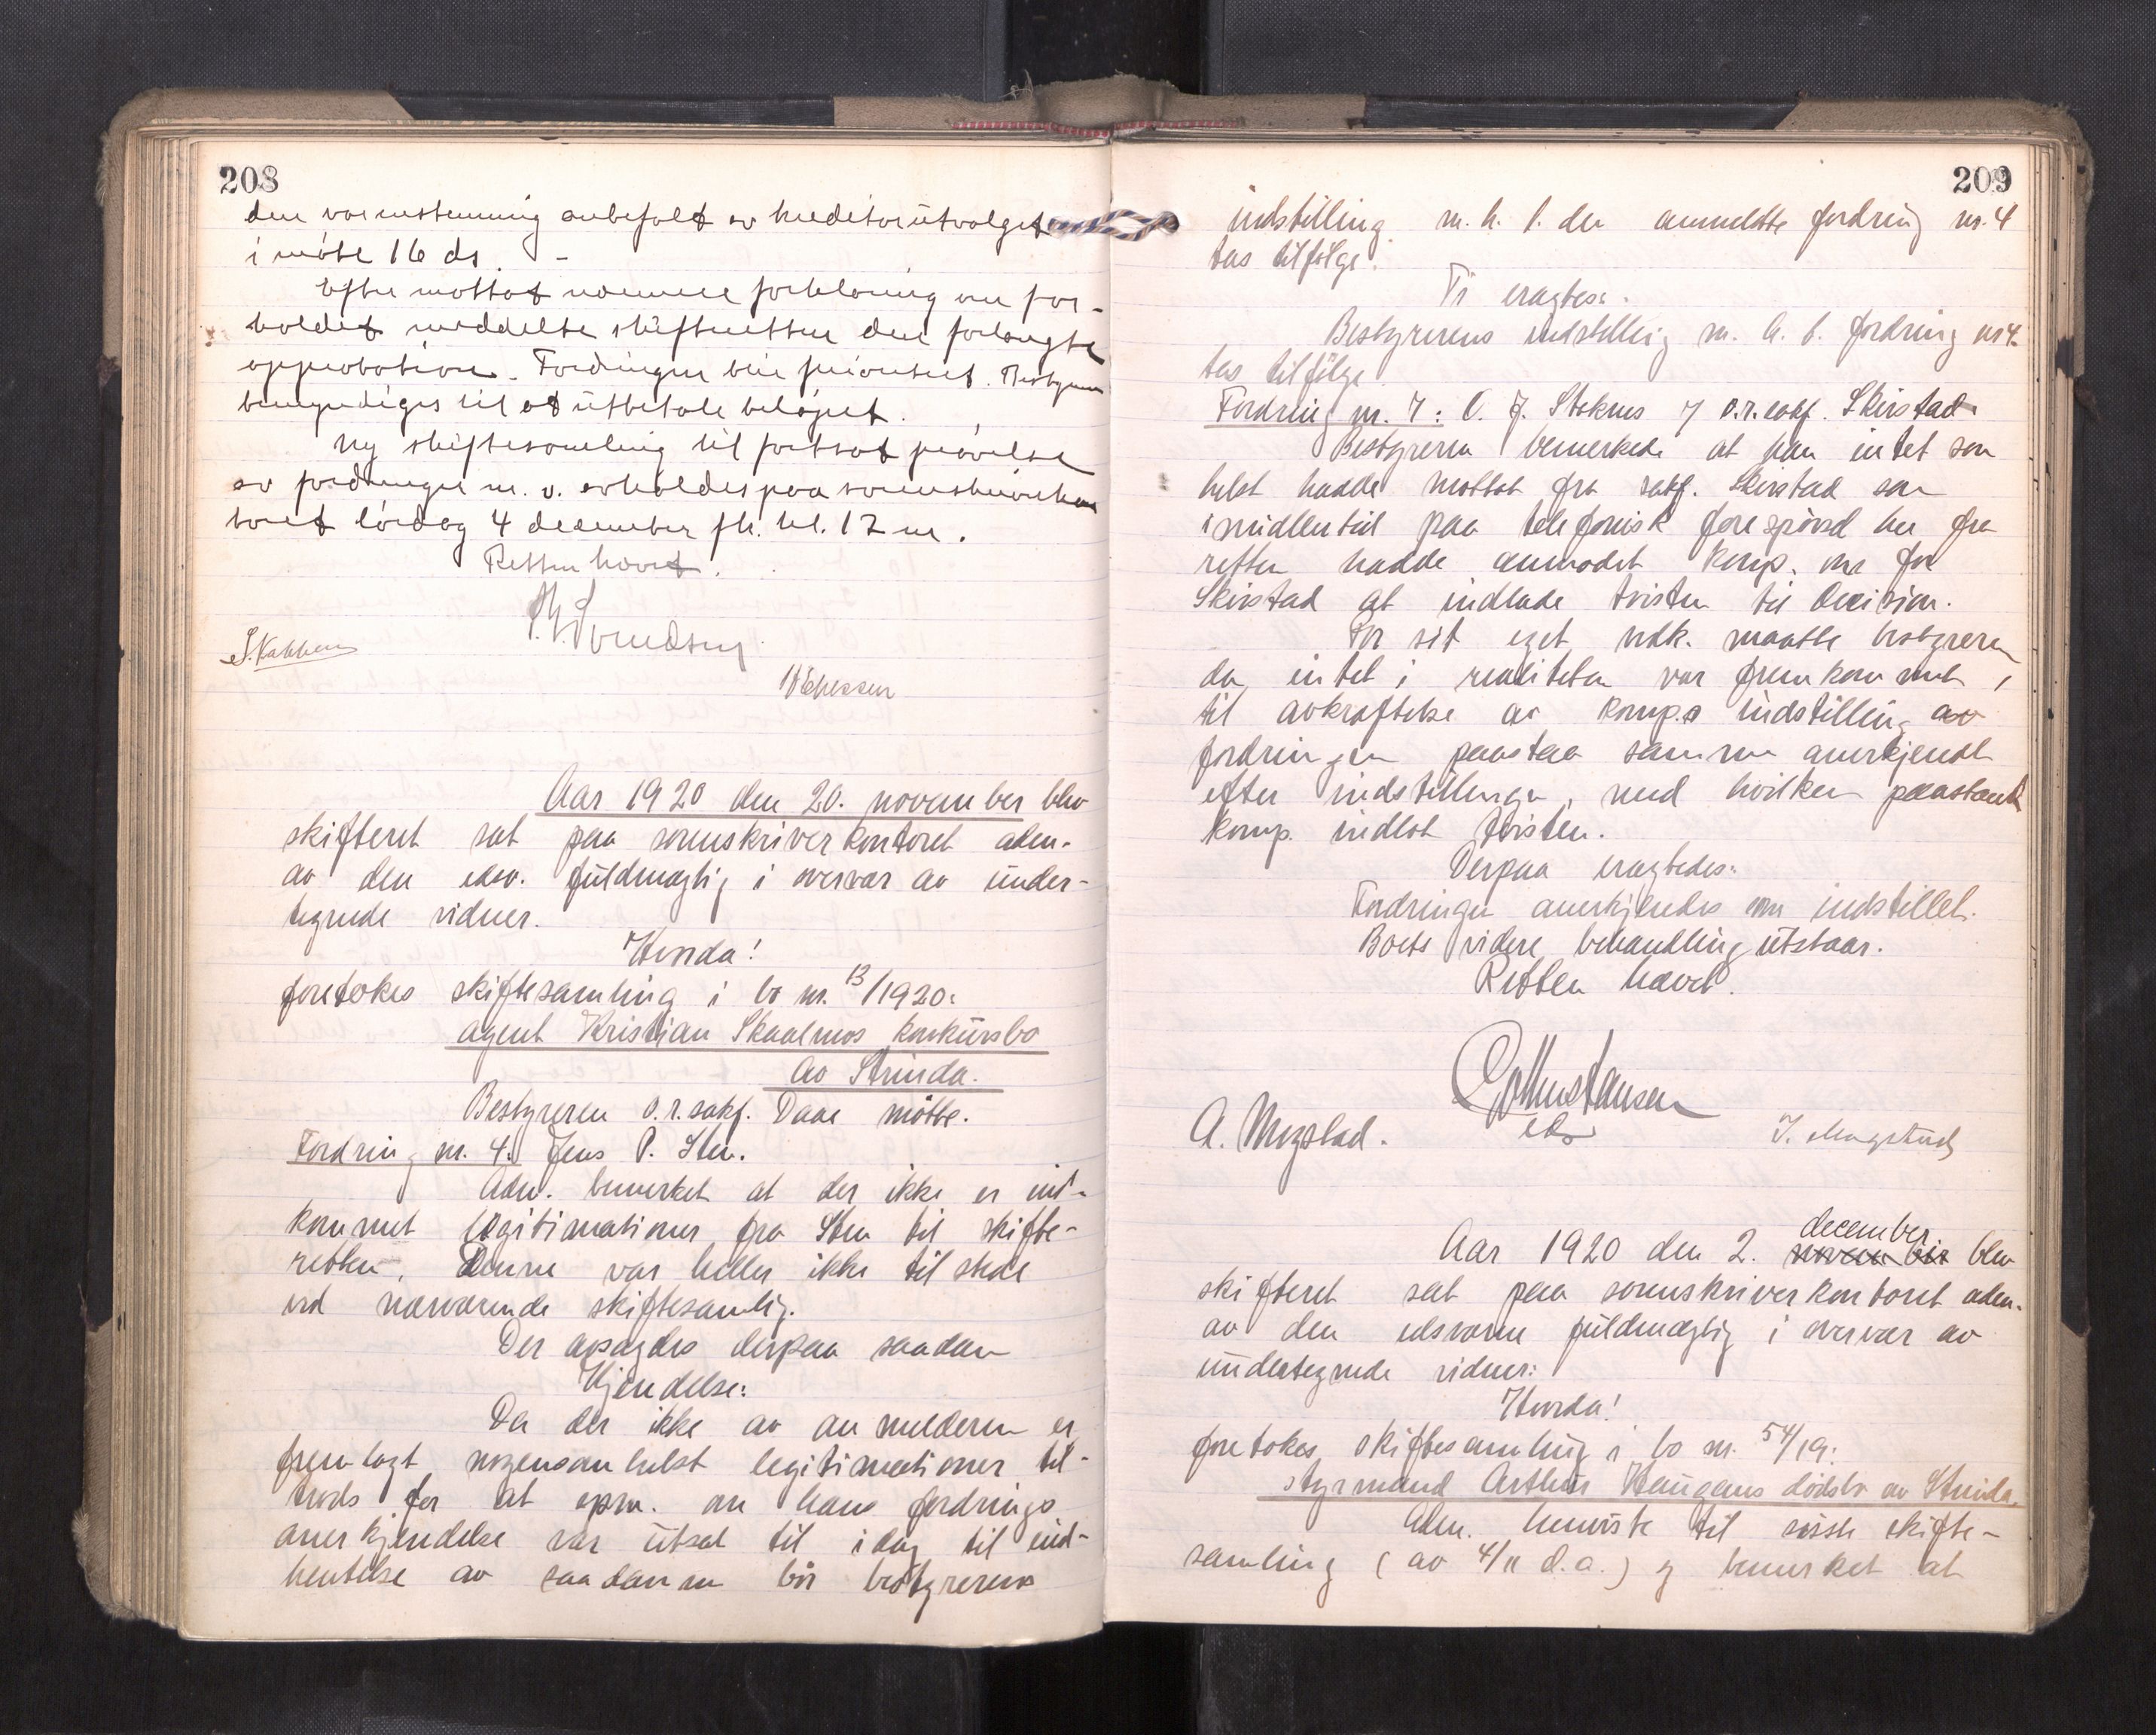 208
den var instemming anbefalt av kreditorutvalget
i møte 16 ds. -
Efter mottat nærmere forklaring om for-
holdet meddelte skifteretten den forlangte
approbation. Fordringen blir prioritert. Bestyreren
bemyndiges til at utbetale beløpet.
Ny skiftesamling til fortsat prøvelse
av fordringer m. v. avholdes paa sorenskriverkon
toret lørdag 4 december fk. kl. 12 m.
Retten hævet.
Aar 1920 den 20. november blev
skifteret sat paa sorenskriverkontoret adm.
av den edsv. fuldmægtig i overvær av under-
tegnede vidner.
Hvorda!
foretokes skiftesamling i bo nr. 13/1920:
agent Kristian Skaalmos konkursbo
av Strinda.
Bestyreren o.r.sakf. Daae møtte.
Fordring nr. 4. Jens P. Sten.
Adm. bemerket at der ikke er ind-
kommet legitimationer fra Sten til skifte-
retten. Denne var heller ikke tilstede
ved nærværende skiftesamling.
Der avsagdes derpaa saadan
Kjendelse:
Da der ikke av anmelderen er
fremlagt nogensomhelst legitimationer til-
trods for at spm. om hans fordrings
anerkjendelse var utsat til idag til ind-
hentelse av saadanne bør bestyrerens
209
indstilling m. h. t. den anmeldte fordring nr. 4
tas tilfølge.
Ti eragtes:
Bestyrerens indstilling m. h. t. fordring nr 4
tas tilfølge.
Fordring nr. 7: O. J. Stokmos / o.r.sakf. Skirstad.
Bestyreren bemerkede at han intet som
helst hadde mottat fra sakf. Skirstad som
imidlertid paa telefonisk forespørsel her fra
retten hadde anmodet komp. om for
Skirstad at indlade tvisten til decision.
For sit eget vdk. maatte bestyreren
da intet i realiteten var fremkommet
til avkræftelse av komp.s indstilling av
fordringen paastaa samme anerkjendt
efter indstillingen, med hvilken paastand
komp. indlot tvisten.
Derpaa eragtedes:
Fordringen anerkjendes som indstillet.
Boets videre behandling utstaar.
Retten hævet.
A. Mogstad.
eds
Aar 1920 den 2. december november blev
skifteret sat paa sorenskriverkontoret adm.
av den edsvorne fuldmægtig i overvær av
undertegnede vidner:
Hvorda!
foretokes skiftesamling i bo nr. 54/19:
styrmand Arthur Haugans dødsbo av Strinda.
Adm. henviste til sidste skifte-
samling (av 4/11 d.a.) og bemerket at